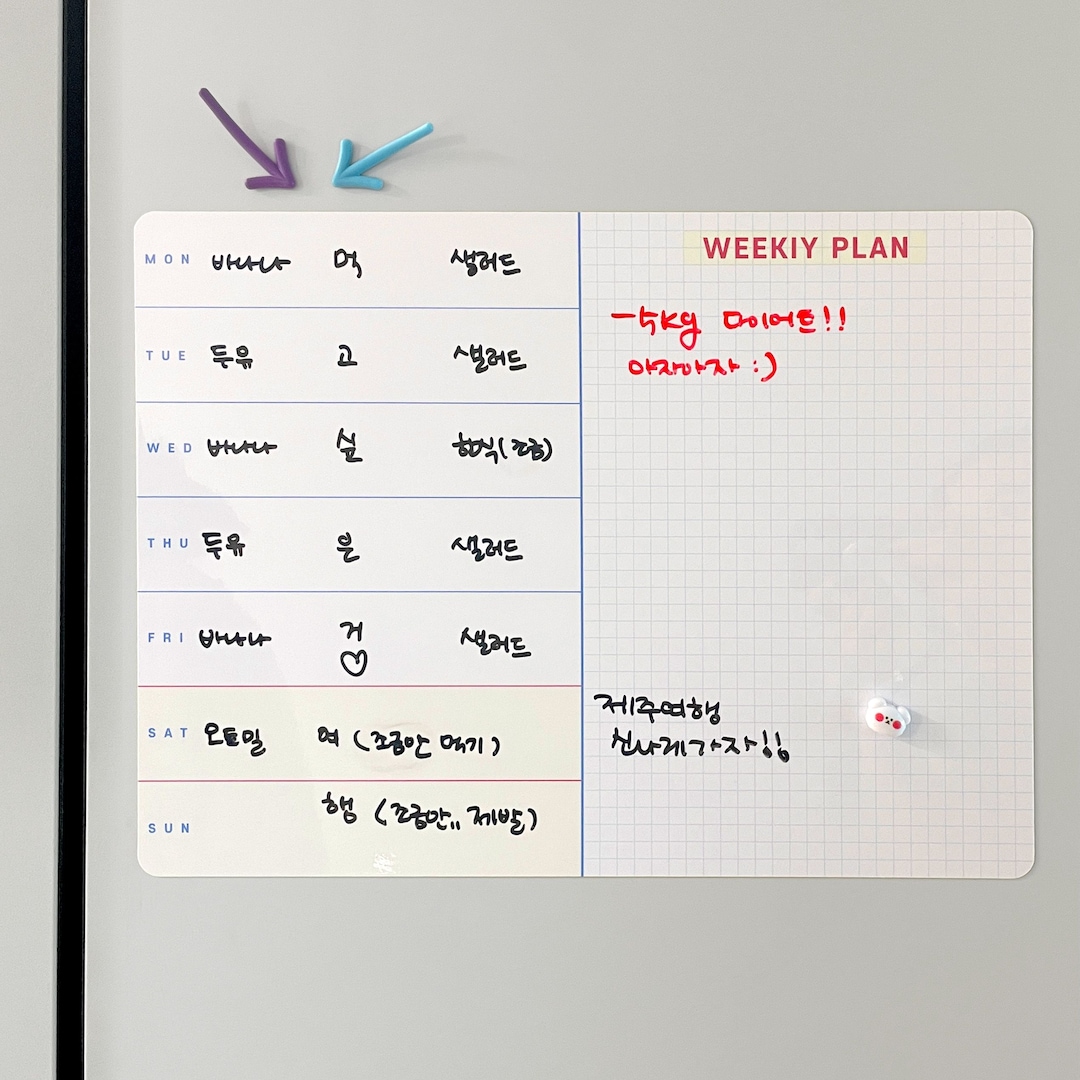 MON 바나나 먹 샐러드
TUE 두유 고 샐러드
WED 바나나 싶 한식(조금)
THU 두유 은 샐러드
FRI 바나나 거 샐러드
SAT 오트밀 여 (조금만 먹기)
SUN 행 (조금만,, 제발)
WEEKIY PLAN
-5kg 다이어트!!
아자아자 :)
제주여행
신나게가자!!